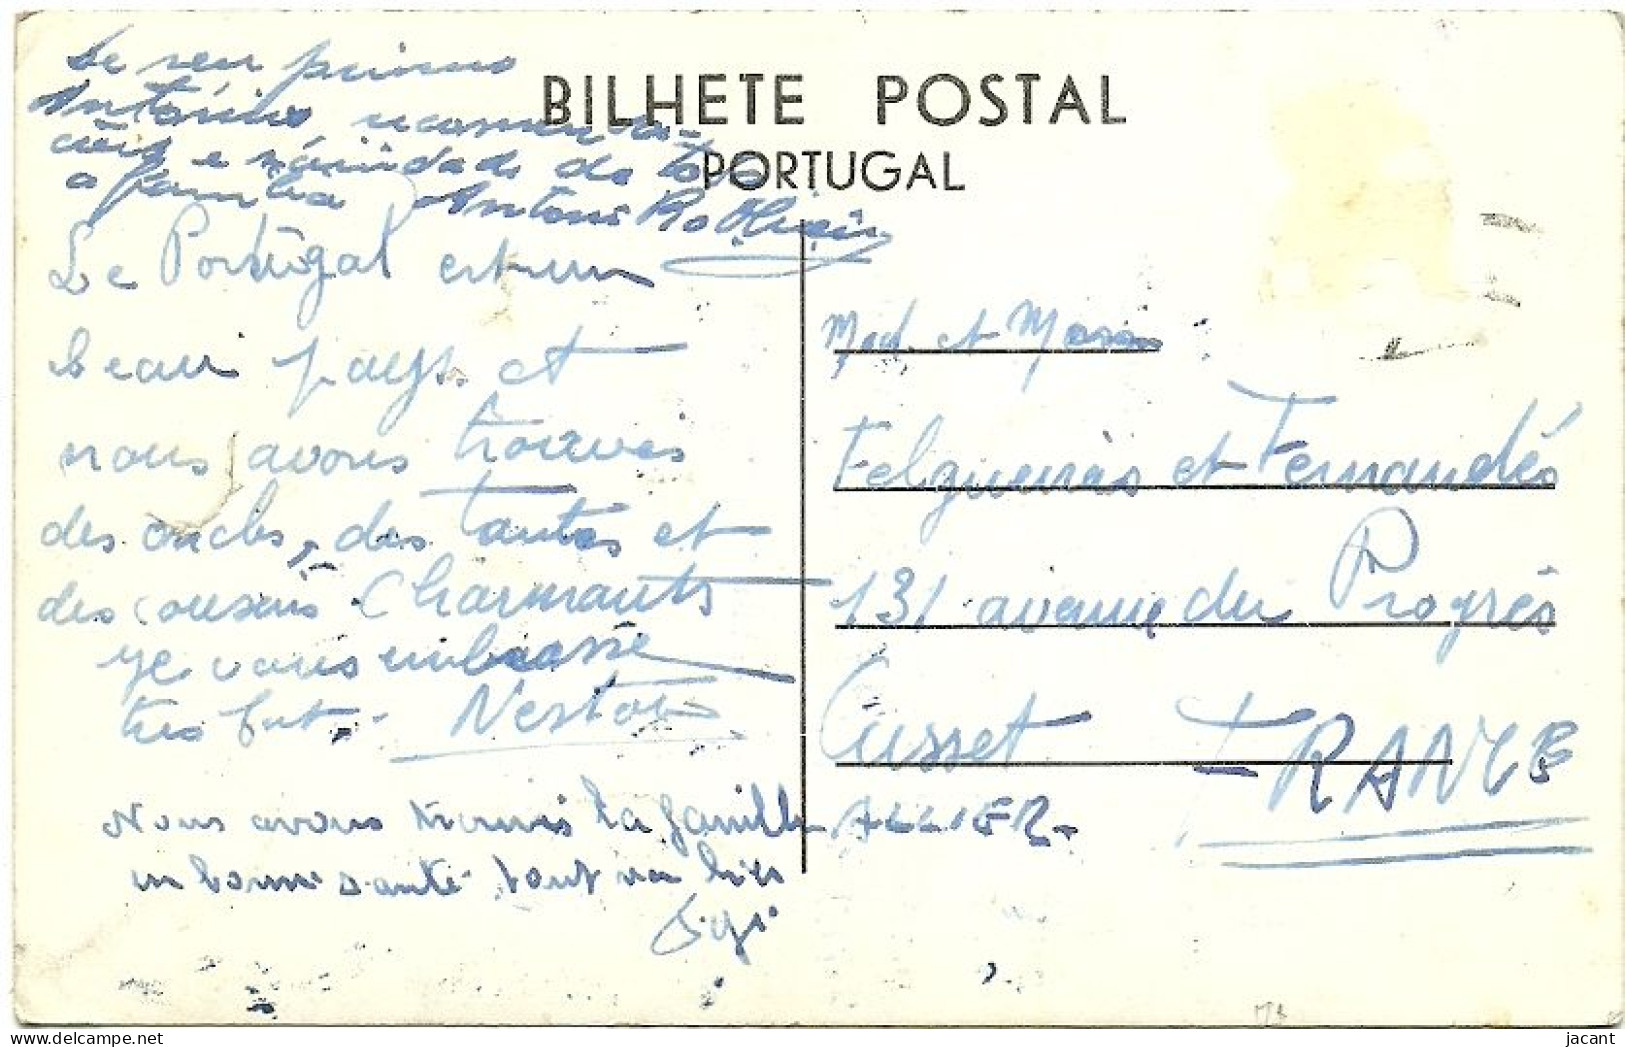 De seu primo
António recomenda-
ções e saúidade de toda
a familia António
BILHETE POSTAL
PORTUGAL
Le Portugal est un
beau pays et
nous avons trouvés
des oncles, des tantes et
des cousins Charmants
Je vous embrasse
très fort. Nestor
Nous avons trouvés la famille
en bonne santé tout va bien
Mad. et
Felgueiras et Fernandés
131 avenue du Progrès
Cusset FRANCE
ALLIER.
jacant